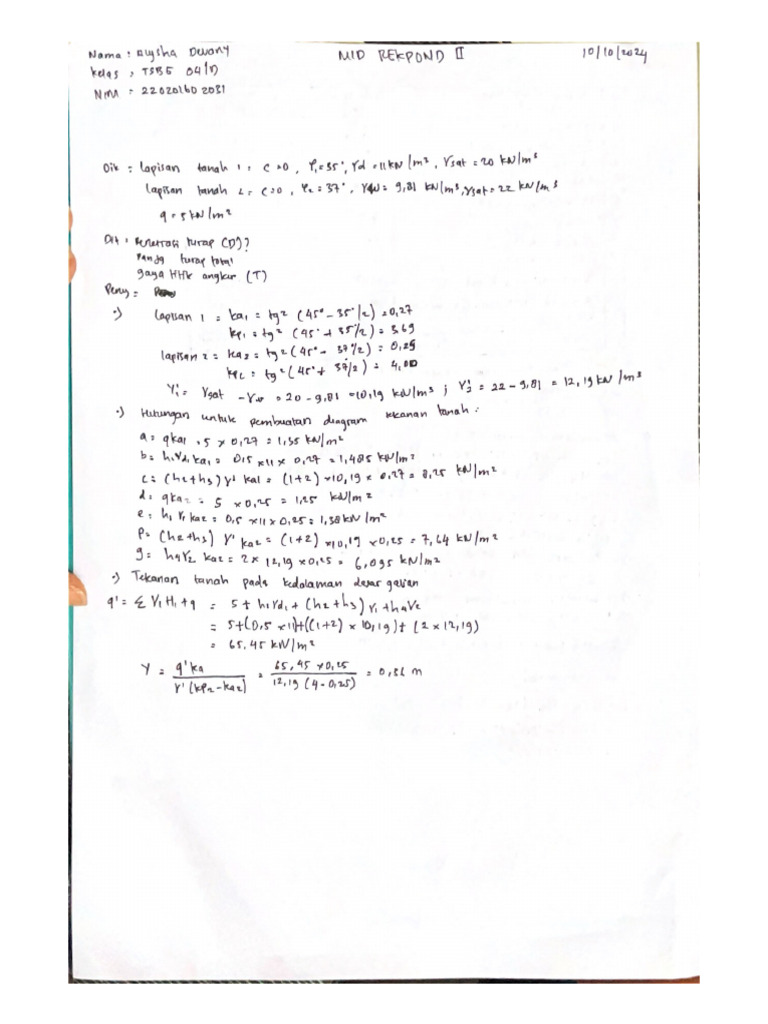 Nama : Alysha Devany
MID REKPOND II
10/10/2024
Kelas : TSBE 04/D
NIM : 220201602031
Dik : Lapisan tanah 1 : C = 0 , φ1 = 35°, γd = 11 kN/m³ , γsat = 20 kN/m³
Lapisan tanah 2 : C = 0 , φ2 = 37° , γw = 9,81 kN/m³, γsat = 22 kN/m³
q = 5 kN/m²
Dit : Penetrasi turap (D)?
Panjg turap total
gaya ttk angkur (T)
Peny :
•) Lapisan 1 : ka1 = tg² (45° - 35°/2) = 0,27
kp1 = tg² (45° + 35/2) = 3,69
Lapisan 2 = ka2 = tg² (45° - 37°/2) = 0,25
kp2 = tg² (45° + 37/2) = 4,00
γ'1 = γsat - γw = 20 - 9,81 = 10,19 kN/m³ ; γ'2 = 22 - 9,81 = 12,19 kN/m³
•) Hitungan untuk pembuatan diagram tekanan tanah :
a = q ka1 = 5 x 0,27 = 1,35 kN/m²
b = h1 γd1 ka1 = 0,5 x 11 x 0,27 = 1,485 kN/m²
c = (h2+h3) γ' ka1 = (1+2) x 10,19 x 0,27 = 8,25 kN/m²
d = q ka2 = 5 x 0,25 = 1,25 kN/m²
e = h1 γ1 ka2 = 0,5 x 11 x 0,25 = 1,38 kN/m²
f = (h2+h3) γ' ka2 = (1+2) x 10,19 x 0,25 = 7,64 kN/m²
g = h4 γ2 ka2 = 2 x 12,19 x 0,25 = 6,095 kN/m²
•) Tekanan tanah pada kedalaman dasar galian
q' = Σ γi Hi + q = 5 + h1 γd1 + (h2 + h3) γ1 + h4 γ2
= 5 + (0,5 x 11) + ((1+2) x 10,19) + (2 x 12,19)
= 65,45 kN/m²
Y = q' ka / γ' (kp2 - ka2) = 65,45 x 0,25 / 12,19 (4 - 0,25) = 0,36 m